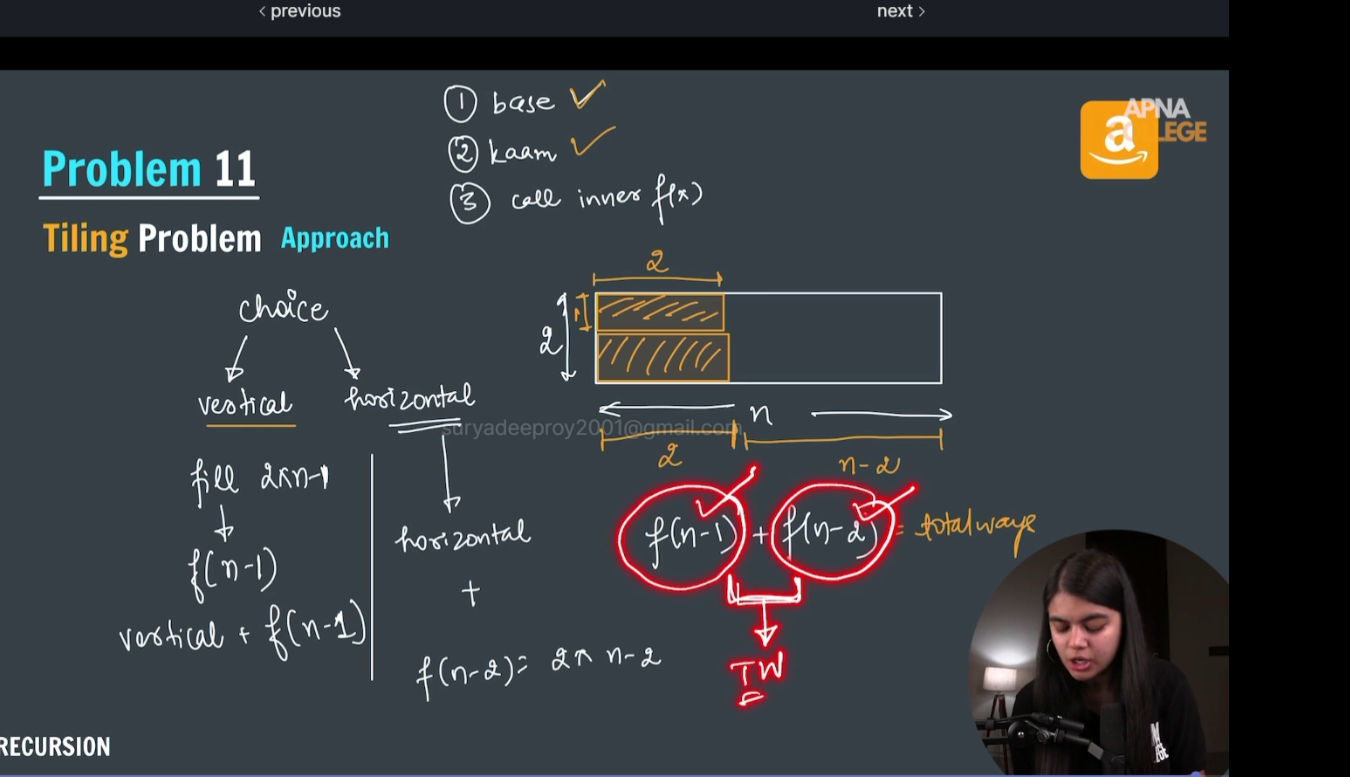 < previous
next >
① base ✓
② kaam ✓
③ call inner f(x)
APNA
LEGE
a
Problem 11
Tiling Problem Approach
choice
vertical
horizontal
fill 2xn-1
f(n-1)
vertical + f(n-1)
horizontal
+
f(n-2) = 2x n-2
2
1
2
n
suryadeeproy2001@gmail.com
2
n-2
f(n-1) + f(n-2) = total ways
TW
RECURSION